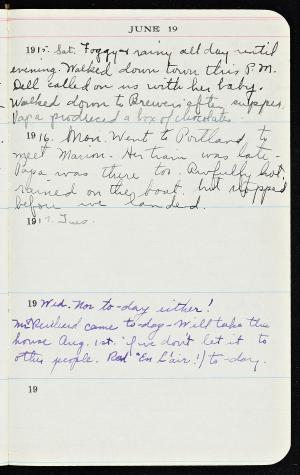 JUNE 19
1915. Sat. Foggy & rainy all day until
evening. Walked down town this P.M.
Dell called on us with her baby.
Walked down to Brewers after supper.
Papa produced a box of chocolates.
1916. Mon. Went to Portland to
meet Marion. Her train was late.
Papa was there too. Awfully hot.
rained on the boat. but stopped
before we landed.
1917. Tues.
19 Wed. Nor to-day either!
Mrs came to-day - Will take the
house Aug. 1st. if we don't let it to
other people. "En L'air!) to-day.
19